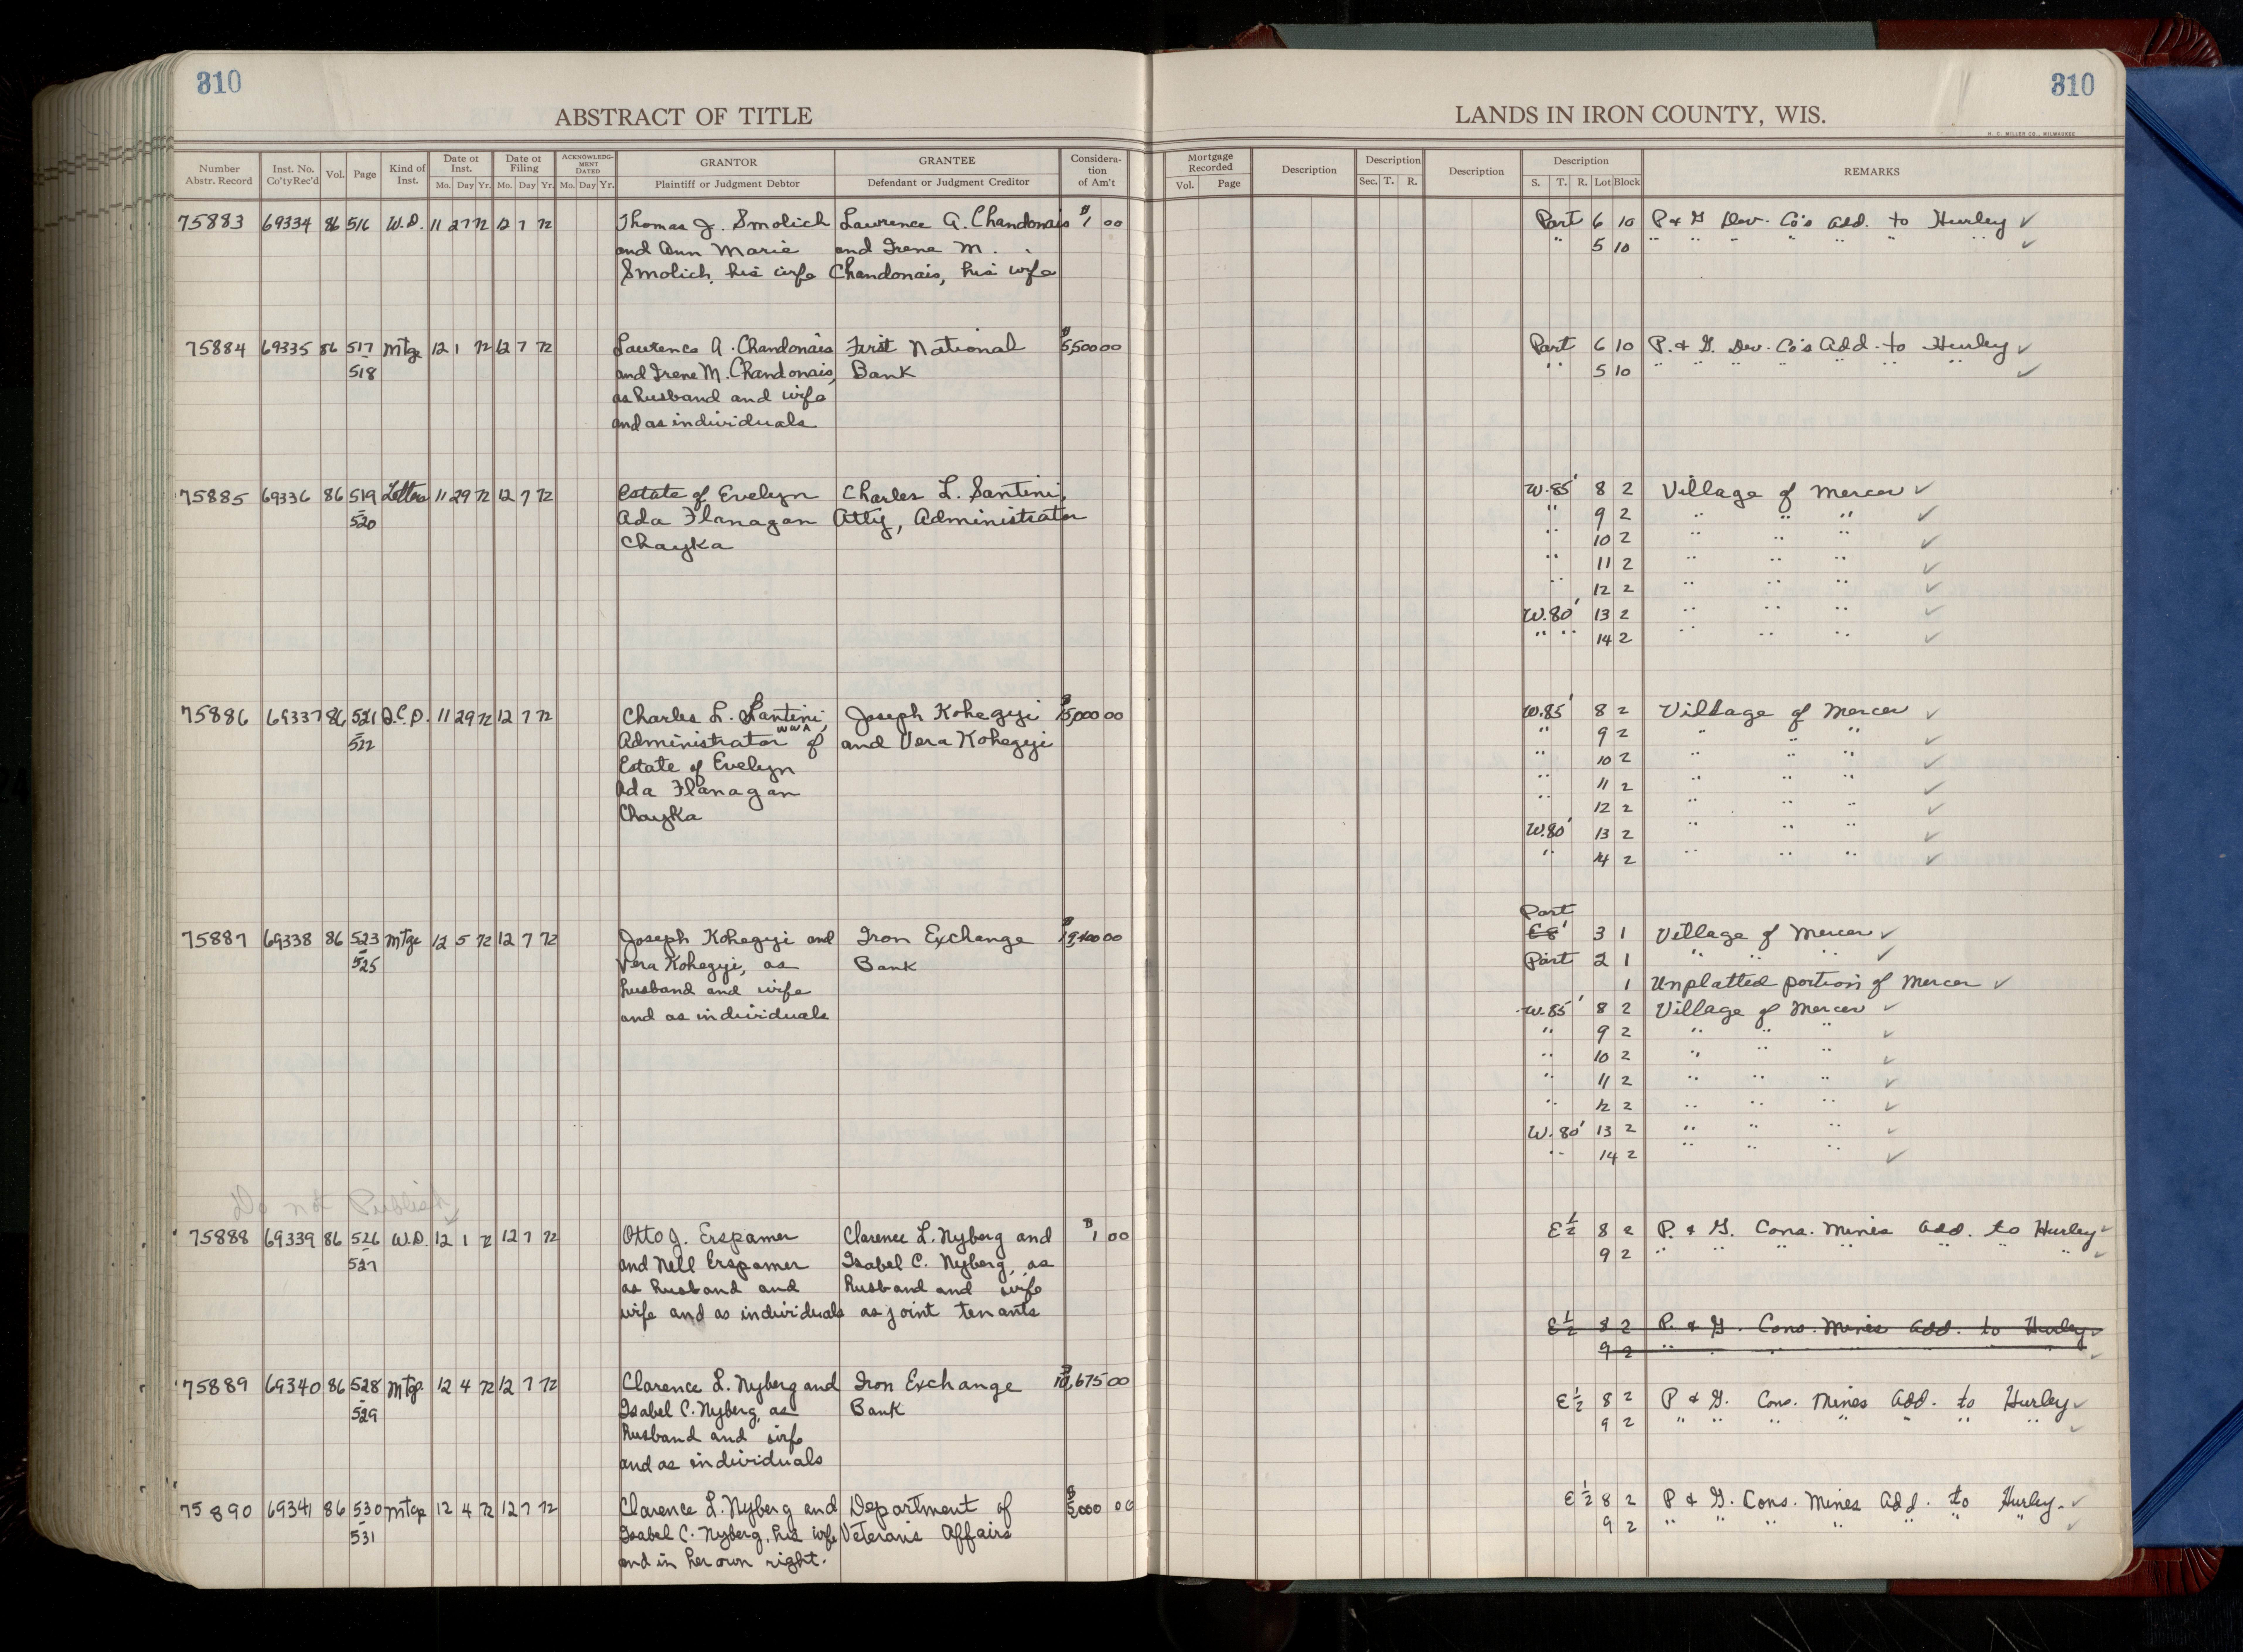 310
310
ABSTRACT OF TITLE
LANDS IN IRON COUNTY, WIS.
H. C. MILLER CO., MILWAUKEE
Number Abstr. Record
Inst. No. Co'tyRec'd
Vol.
Page
Kind of Inst.
Date of Inst.
Mo. Day Yr.
Date of Filing
Mo. Day Yr.
ACKNOWLEDGMENT DATED
Mo. Day Yr.
GRANTOR
Plaintiff or Judgment Debtor
GRANTEE
Defendant or Judgment Creditor
Consideration of Am't
Mortgage Recorded
Vol. Page
Description
Description
Sec. T. R.
Description
Description
S. T. R. Lot Block
REMARKS
75883 69334 86 516 W.D. 11 27 72 12 7 72 Thomas J. Smolich Lawrence A. Chandonais $1 00 Part 6 10 P & G Dev. Co's Add. to Hurley ✓
and Ann Marie and Irene M. " 5 10 " " " " " " " ✓
Smolich, his wife Chandonais, his wife
75884 69335 86 517 Mtge 12 1 72 12 7 72 Lawrence A. Chandonais First National $5,500 00 Part 6 10 P. & G. Dev. Co's Add. to Hurley ✓
518 and Irene M. Chandonais, Bank " 5 10 " " " " " " " ✓
as husband and wife
and as individuals
75885 69336 86 519 Letters 11 29 72 12 7 72 Estate of Evelyn Charles L. Santini, W. 85' 8 2 Village of Mercer ✓
520 Ada Flanagan Atty, Administrator " 9 2 " " " ✓
Chayka " 10 2 " " " ✓
" 11 2 " " " ✓
" 12 2 " " " ✓
W. 80' 13 2 " " " ✓
" " 14 2 " " " ✓
75886 69337 86 521 11 29 72 12 7 72 Charles L. Santini, Joseph Kohegyi 00 W. 85' 8 2 Village of Mercer ✓
522 Administrator WWA, of and Vera Kohegyi " 9 2 " " " ✓
Estate of Evelyn " 10 2 " " " ✓
Ada Flanagan " 11 2 " " " ✓
Chayka " 12 2 " " " ✓
W. 80' 13 2 " " " ✓
" 14 2 " " " ✓
Part
75887 69338 86 523 Mtge 12 5 72 12 7 72 Joseph Kohegyi and Iron Exchange 00 E8' 3 1 Village of Mercer ✓
525 Vera Kohegyi, as Bank Part 2 1 " " " ✓
husband and wife 1 Unplatted portion of Mercer ✓
and as individuals W. 85' 8 2 Village of Mercer ✓
" 9 2 " " " ✓
" 10 2 " " " ✓
" 11 2 " " " ✓
" 12 2 " " " ✓
W. 80' 13 2 " " " ✓
" 14 2 " " " ✓
Do not Publish
75888 69339 86 526 W.D. 12 1 72 12 7 72 Otto J. Erspamer Clarence L. Nyberg and $1 00 E½ 8 2 P. & G. Cons. Mines Add. to Hurley ✓
527 and Nell Erspamer Isabel C. Nyberg, as 9 2 " " " " " " " ✓
as husband and husband and wife
wife and as individuals as joint tenants
E½ 8 2 P. & G. Cons. Mines Add. to Hurley ✓
9 2 " " " " " " " ✓
75889 69340 86 528 Mtge 12 4 72 12 7 72 Clarence L. Nyberg and Iron Exchange $10,675 00 E½ 8 2 P & G. Cons. Mines Add. to Hurley ✓
529 Isabel C. Nyberg, as Bank 9 2 " " " " " " " ✓
husband and wife
and as individuals
75890 69341 86 530 Mtge 12 4 72 12 7 72 Clarence L. Nyberg and Department of $5,000 00 E½ 8 2 P & G. Cons. Mines Add. to Hurley. ✓
531 Isabel C. Nyberg, his wife Veterans Affairs 9 2 " " " " " " " ✓
and in her own right.